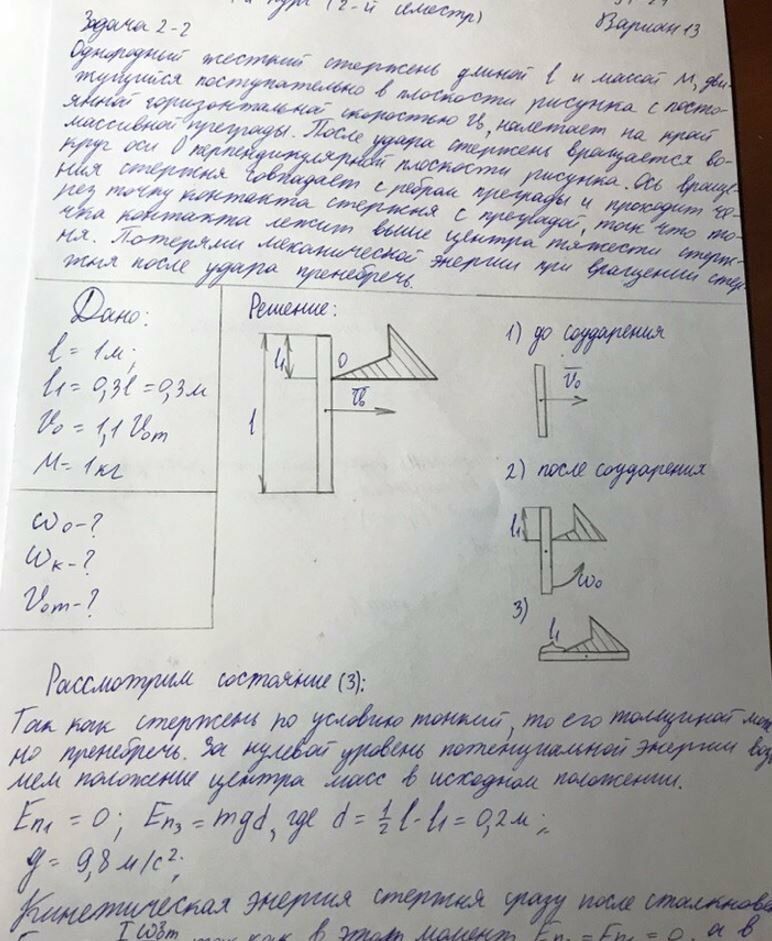 курс (2-й семестр)
Задача 2-2
Вариан 13
Однородный жесткий стержень длиной l и массой М, дви-
жущийся поступательно в плоскости рисунка с посто-
янной горизонтальной скоростью V₀, налетает на край
массивной преграды. После удара стержень вращается во-
круг оси О перпендикулярной плоскости рисунка. Ось враще-
ния стержня совпадает с ребром преграды и проходит че-
рез точку контакта стержня с преградой, так что то-
чка контакта лежит выше центра тяжести стерж-
ня. Потерями механической энергии при вращении стер-
жня после удара пренебречь.
Дано:
l = 1м;
l₁ = 0,3l = 0,3м
V₀ = 1,1 V₀m
M = 1кг
ω₀ - ?
ωк - ?
V₀m - ?
Решение:
l₁
O
V₀
l
1) до соударения
V₀
2) после соударения
l₁
ω₀
3)
l₁
Рассмотрим состояние (3):
Так как стержень по условию тонкий, то его толщиной мож
но пренебречь. За нулевой уровень потенциальной энергии возь
мем положение центра масс в исходном положении.
Eп₁ = 0; Eп₃ = mgd, где d = ½l - l₁ = 0,2м;
g = 9,8 м/с²;
Кинетическая энергия стержня сразу после столкнове
так как в этот момент Eп₂ = Eп₁ = 0, а в